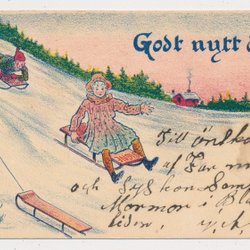 Godt nytt å
Till önska
af Far m
och Syskon Sam
Mormor i Bl
liden,